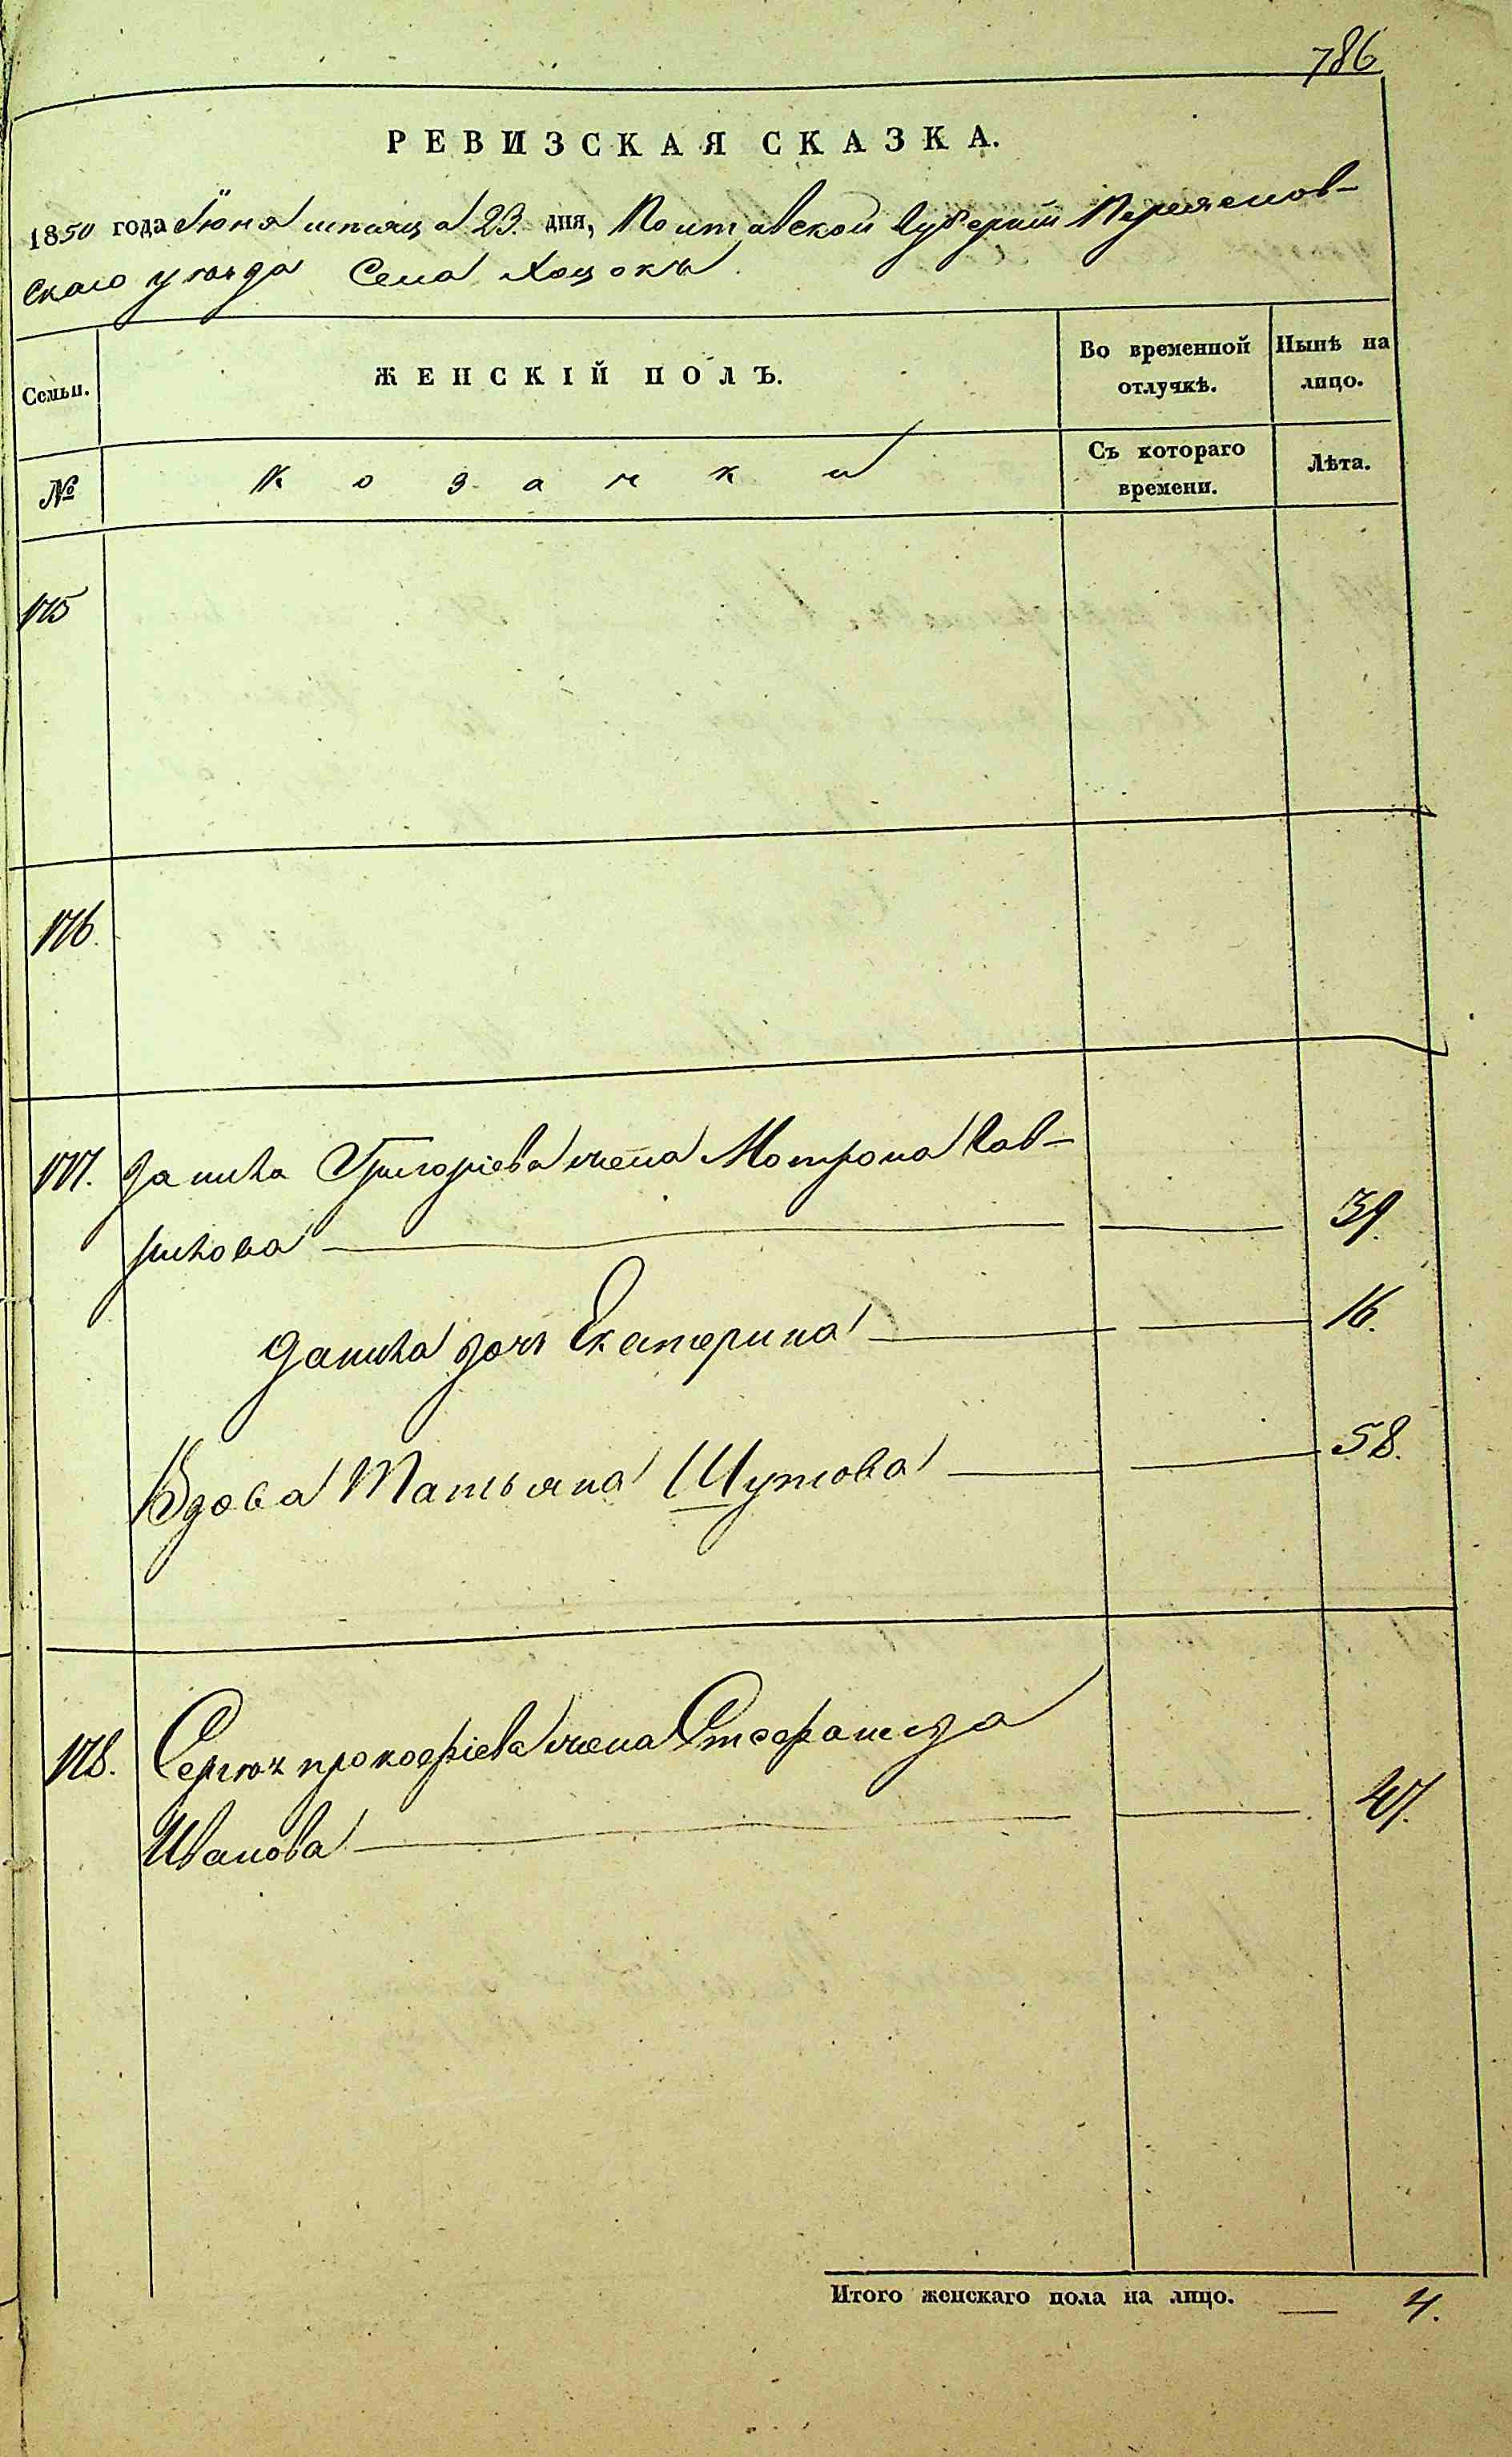 786
РЕВИЗСКАЯ СКАЗКА.
1850 года Іюня мѣсяца 23. дня, Полтавской Губерніи Переяслов-
скаго уѣзда Села Хоцокъ.
Семьи.
ЖЕНСКІЙ ПОЛЪ.
Во временной отлучкѣ.
Нынѣ на лицо.
№
Козачки
Съ котораго времени.
Лѣта.
175
176.
177. Данила Григоріева жена Мотрона Гав-
рилова 39.
Данила дочь Екатерина 16.
Вдова Татьяна Шутова 58.
178. Сергѣя прокофіева жена Стефанида
Иванова 47.
Итого женскаго пола на лицо. 4.